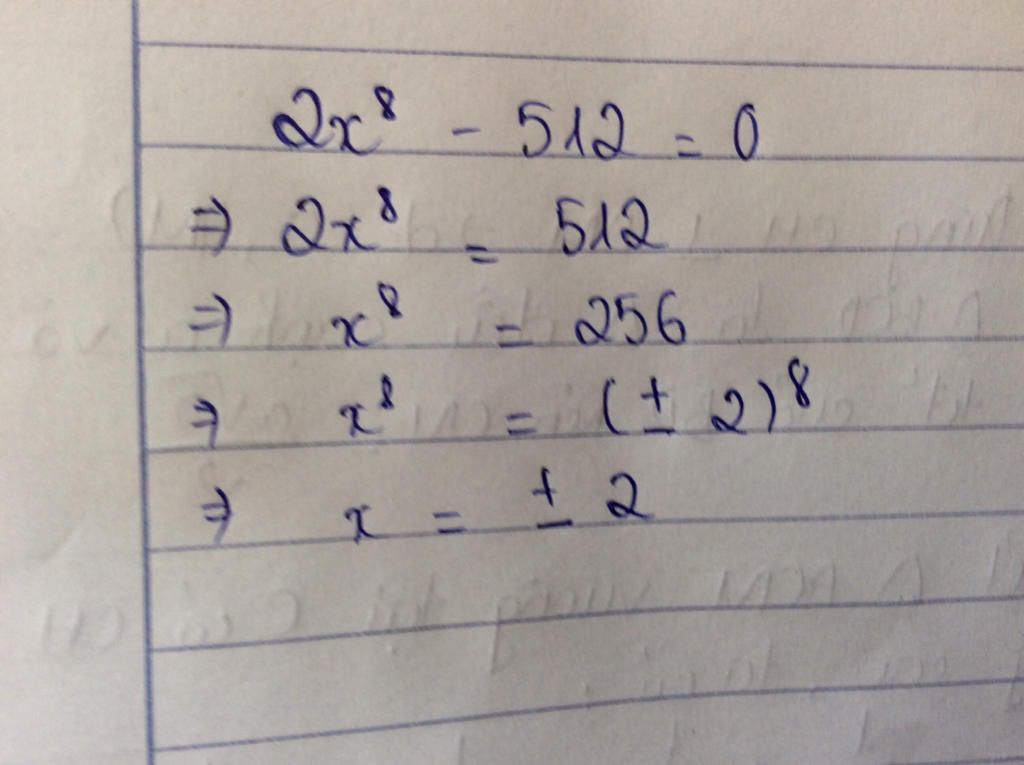 2x⁸ - 512 = 0
⇒ 2x⁸ = 512
⇒ x⁸ = 256
⇒ x⁸ = (± 2)⁸
⇒ x = ± 2